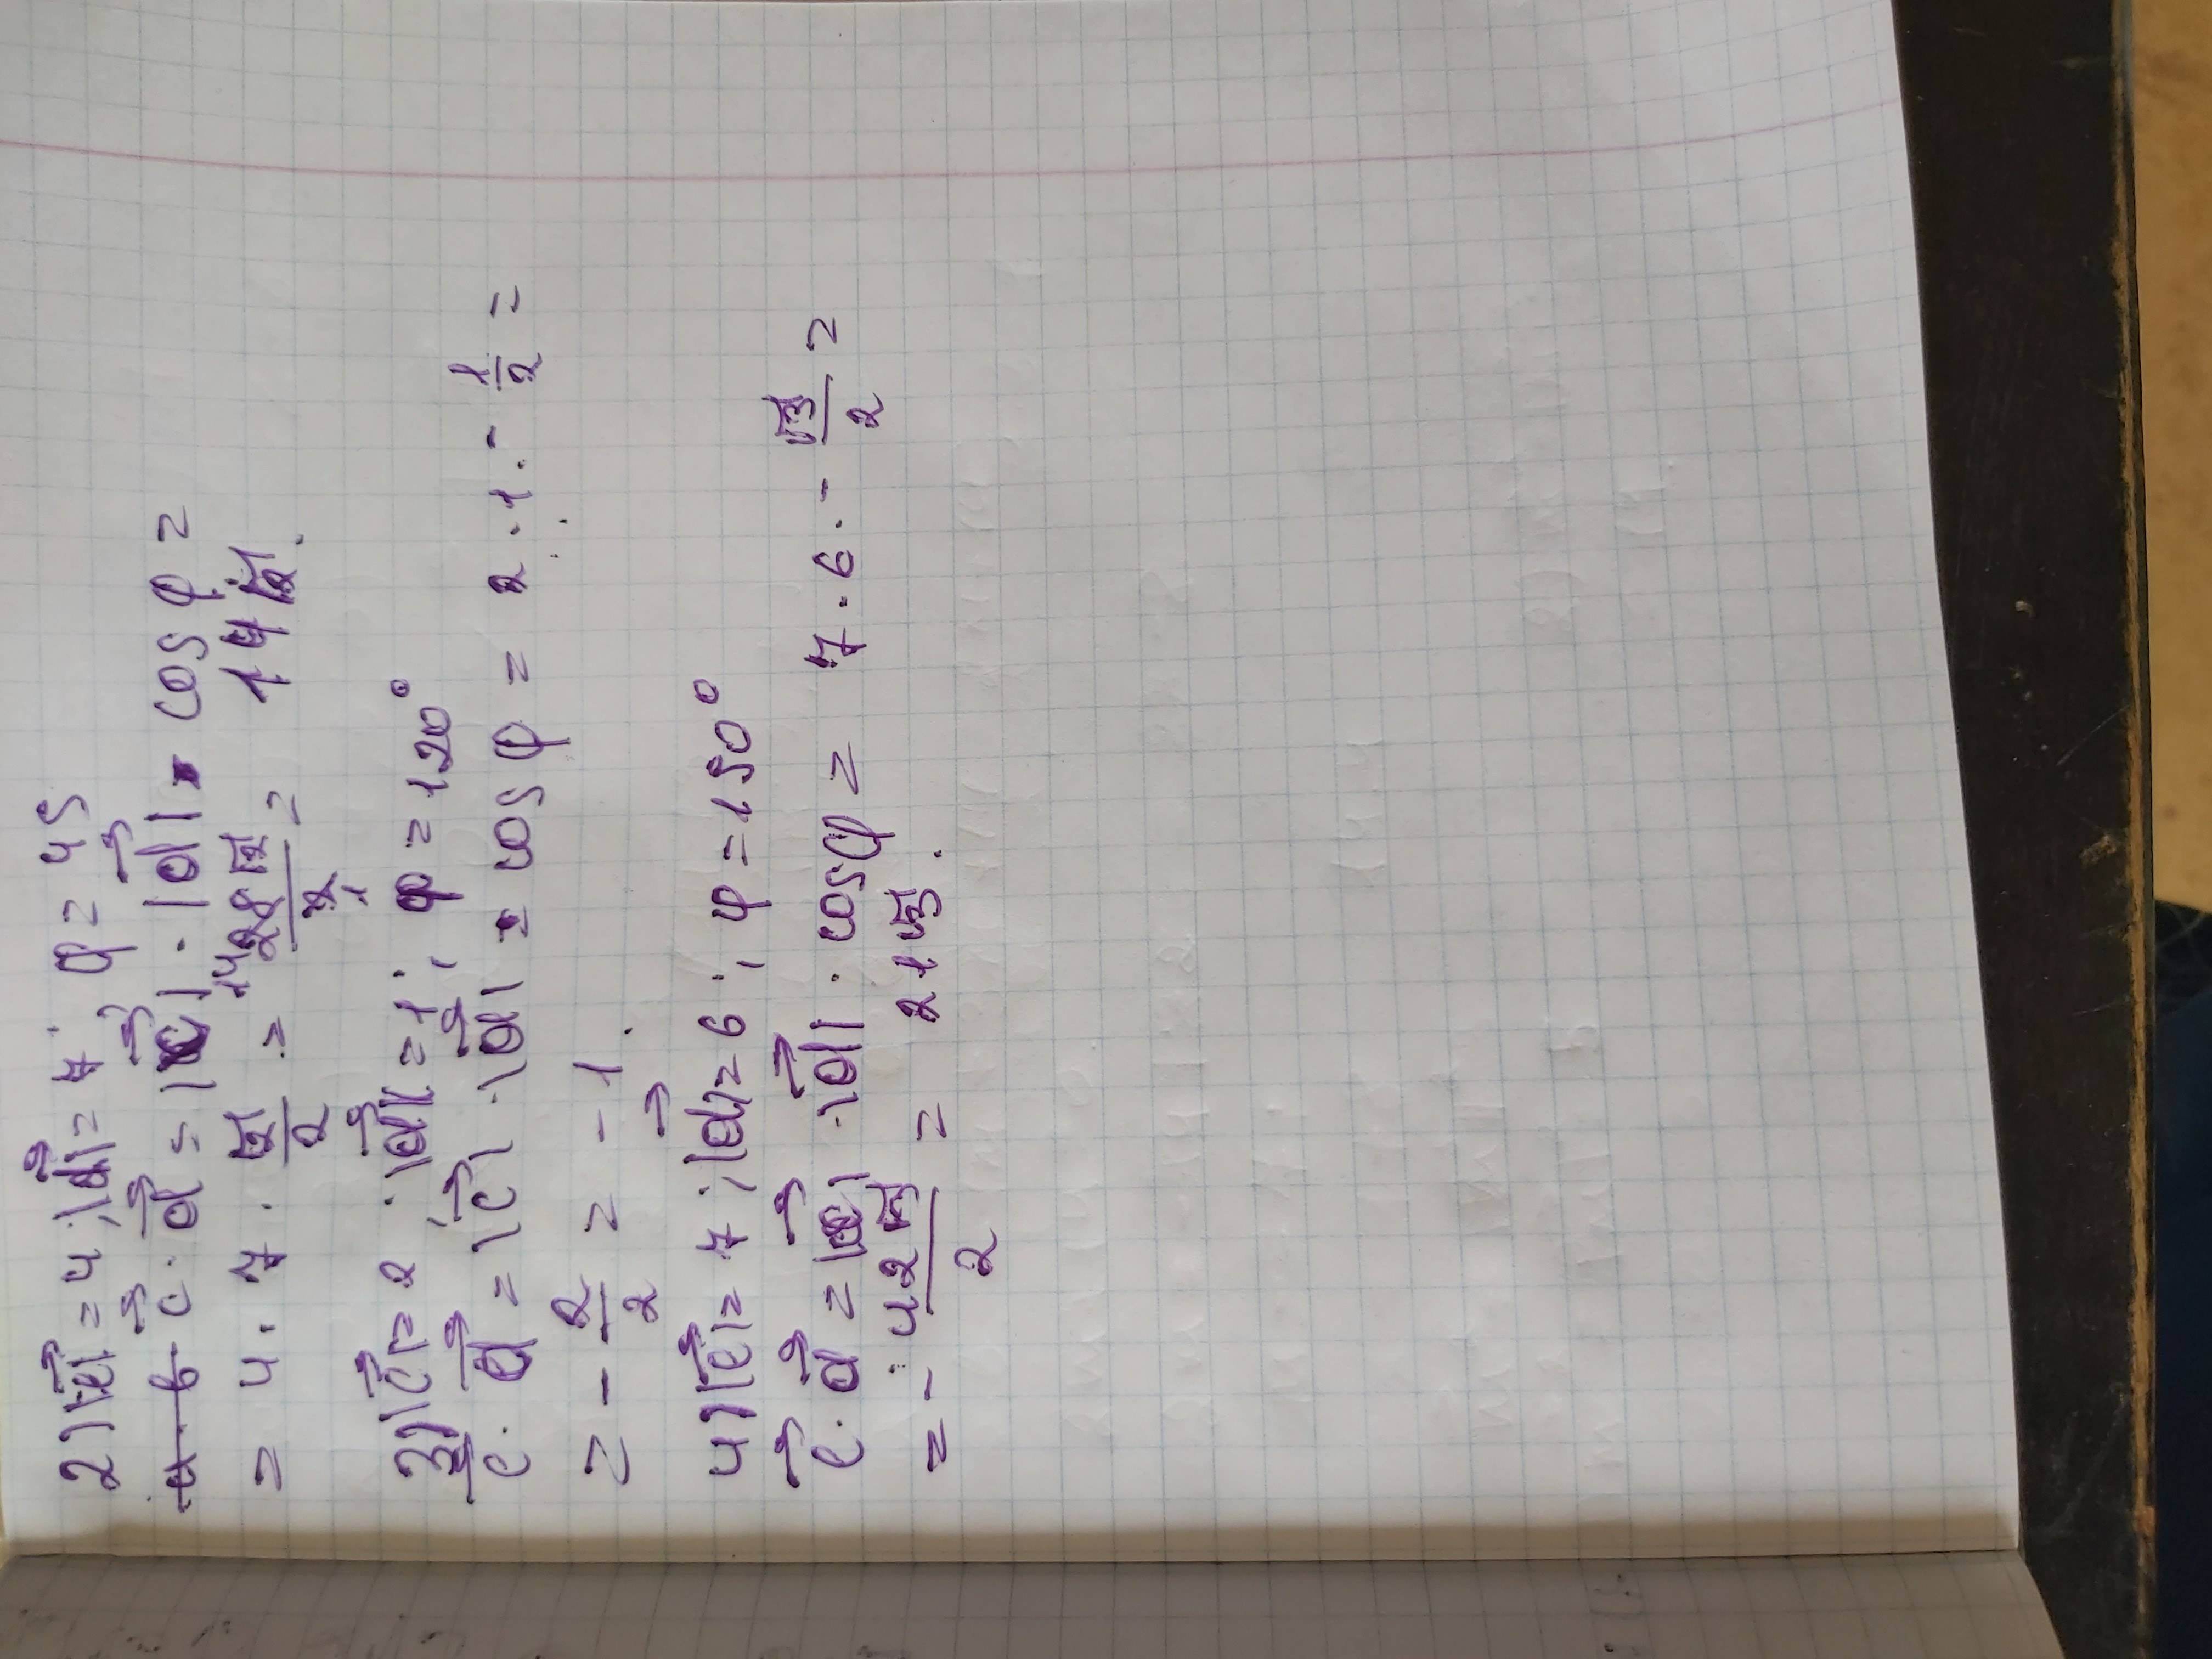 2) |c⃗| = 4; |d⃗| = 7; φ = 45
c⃗ · d⃗ = |c⃗| · |d⃗| · cos φ =
= 4 · 7 · √2/2 = 28√2/2 = 14√2.
3) |c⃗| = 2; |d⃗| = 1; φ = 120°
c⃗ · d⃗ = |c⃗| · |d⃗| · cos φ = 2 · 1 · - 1/2 =
= - 2/2 = - 1.
4) |c⃗| = 7; |d⃗| = 6; φ = 150°
c⃗ · d⃗ = |c⃗| · |d⃗| · cos φ = 7 · 6 · - √3/2 =
= - 42√3/2 = 21√3.